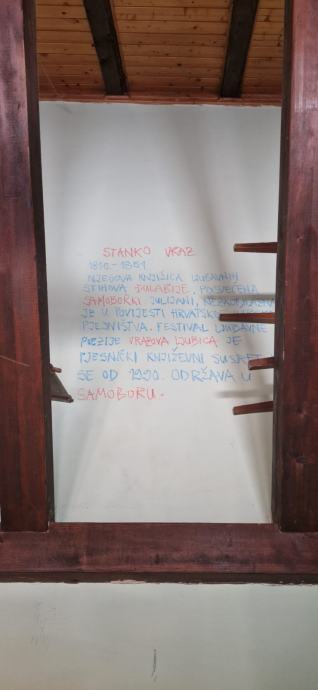 STANKO VRAZ
1810.-1851
NJEGOVA KNJIŽICA LJUBAVNIH
STIHOVA ĐULABIJE, POSVEĆENA
SAMOBORKI JULIJANI,
JE U POVIJESTI HRVATSKOG
PJESNIŠTVA. FESTIVAL LJUBAVNE
POEZIJE VRAZOVA LJUBICA JE
PJESNIČKI KNJIŽEVNI SUSRET
SE OD 1990. ODRŽAVA U
SAMOBORU.